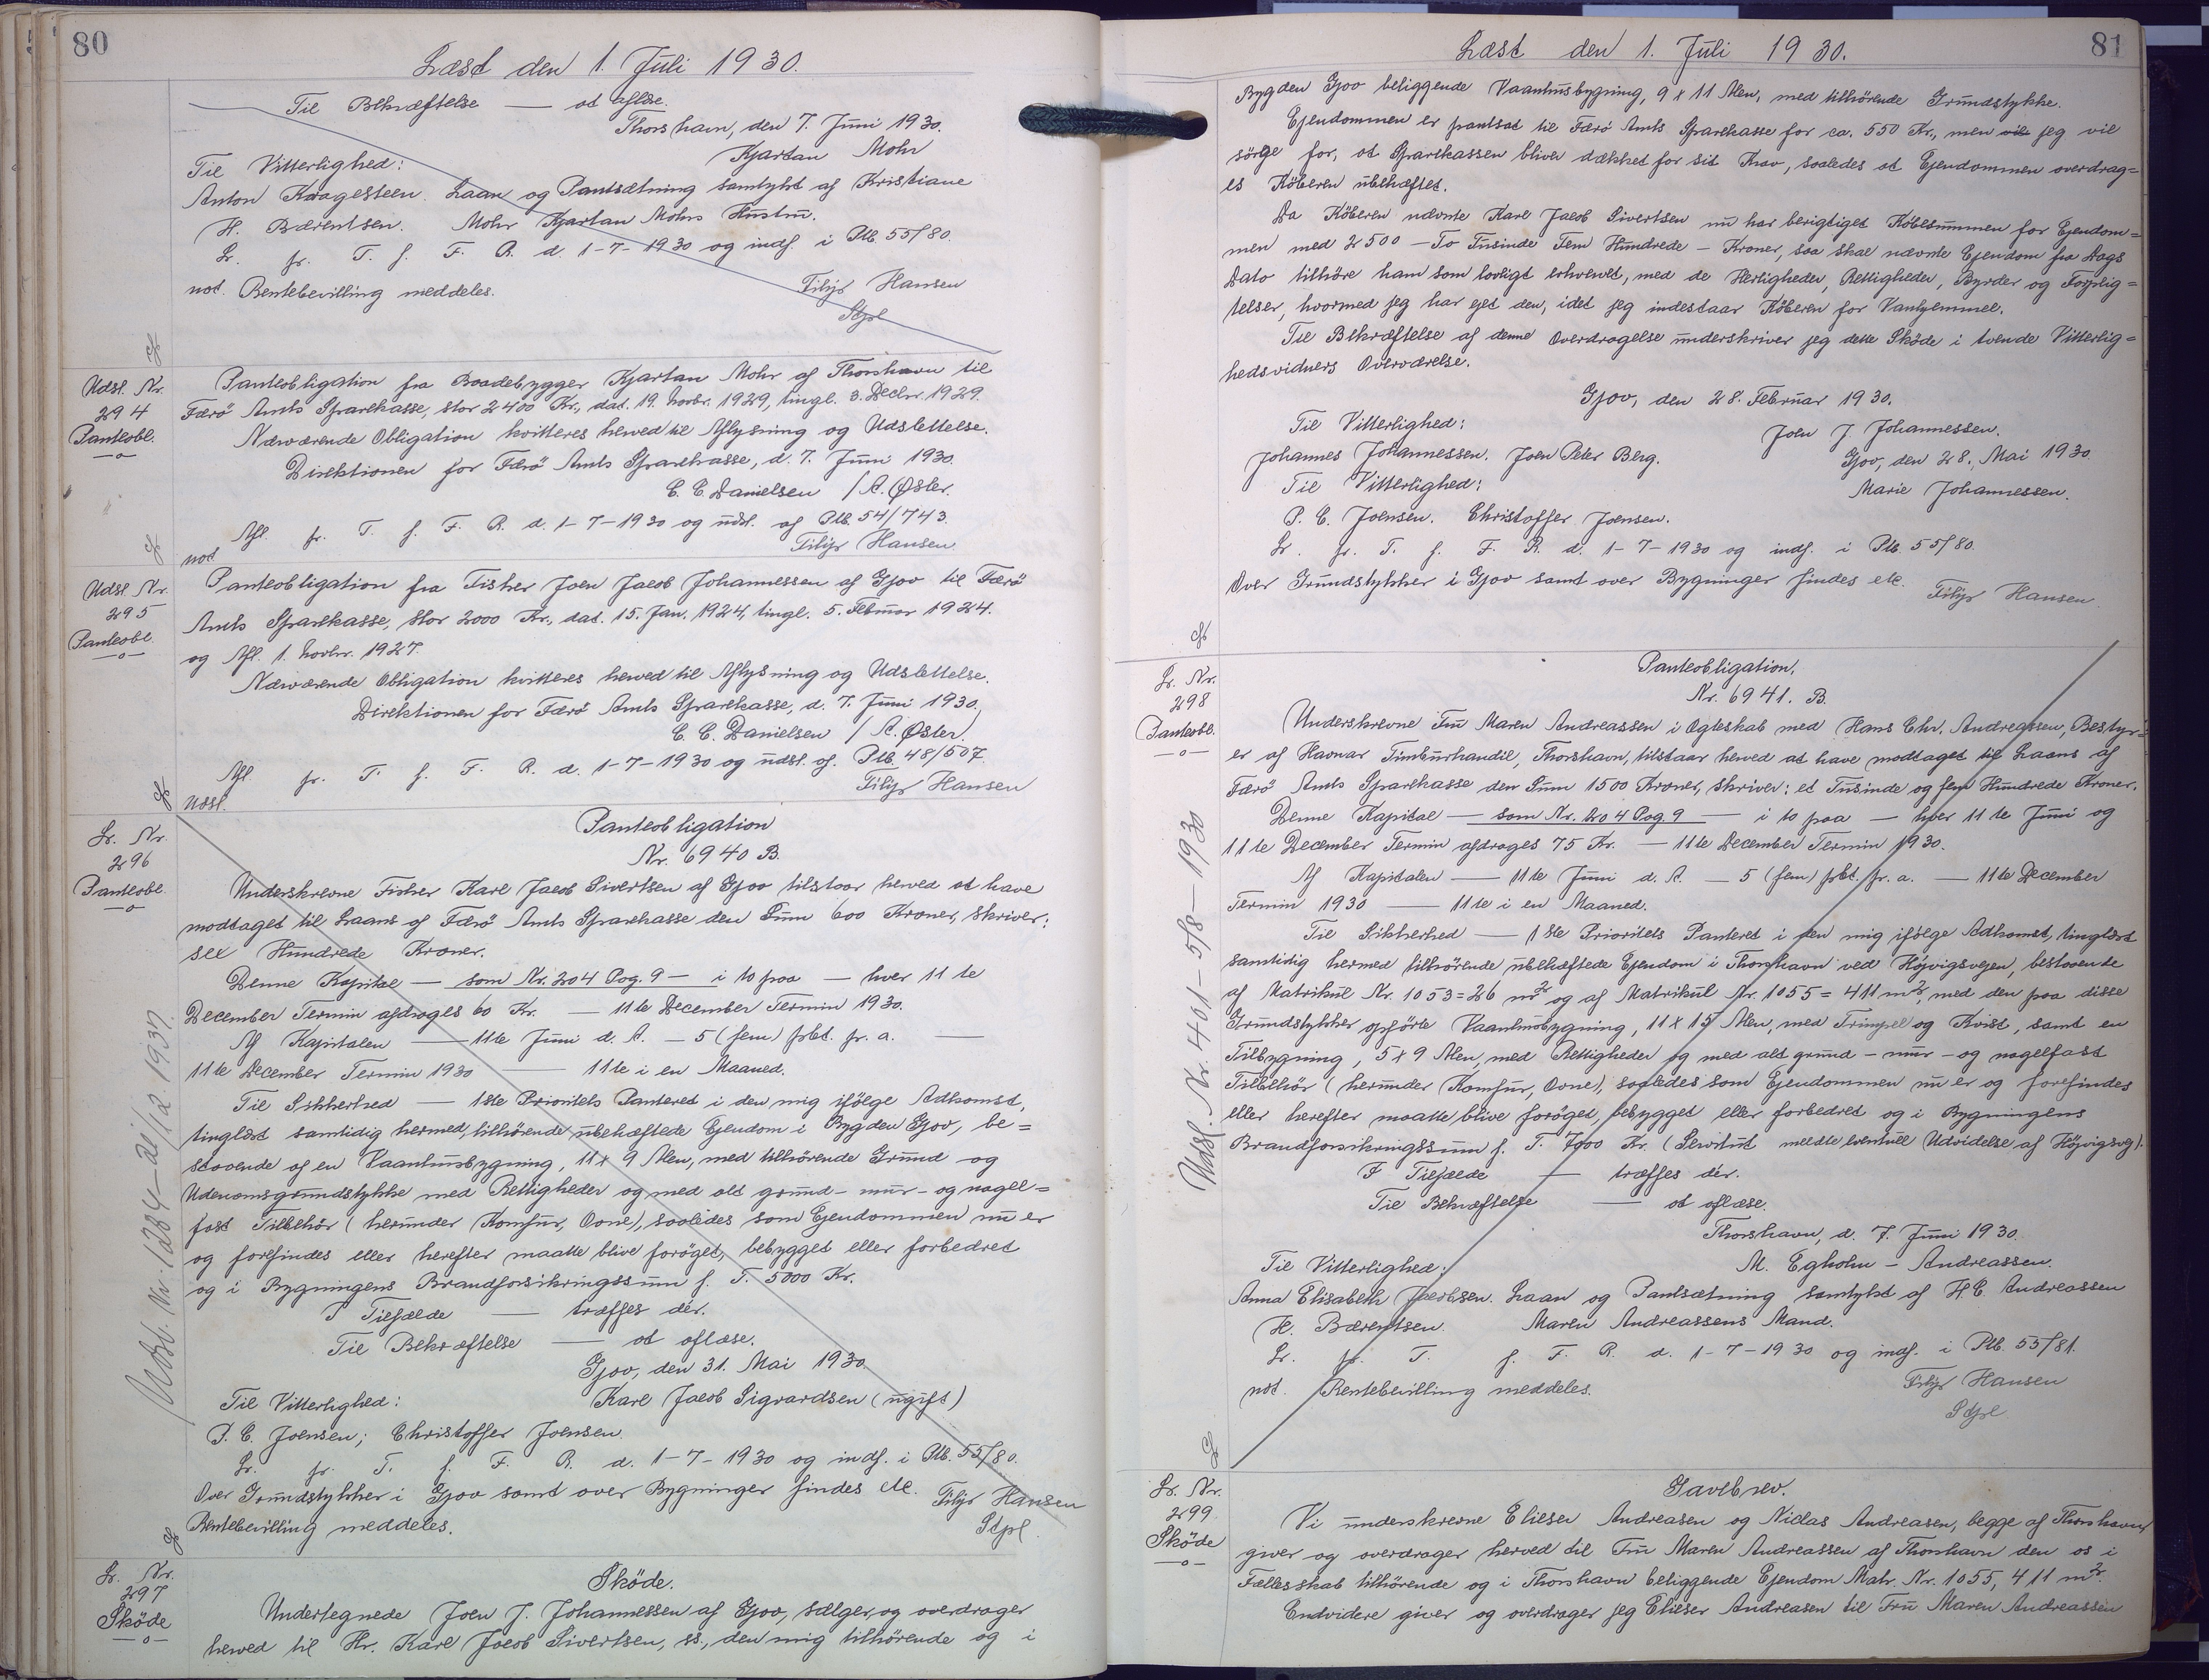 80
Læst den 1. Juli 1930.
Til Bekræftelse — at aflæse.
Thorshavn, den 7. Juni 1930.
Til Vitterlighed: Kjartan Mohr
Anton Kragesteen. Laan og Pantsætning samtykt af Kristiane
H. Bærentsen. Mohr Kjartan Mohrs Hustru.
Lr. fr. T. f. F. R. d. 1-7-1930 og indf. i Ptb. 55/80.
not. Rentebevilling meddeles. Filip Hansen
Stpl
Udsl. Nr. 294 Panteobl.
Panteobligation fra Baadebygger Kjartan Mohr af Thorshavn til
Færö Amts Sparekasse, stor 2400 Kr., dat. 19. Novbr. 1929, tingl. 3. Decbr. 1929.
Nærværende Obligation kvitteres herved til Aflysning og Udslettelse.
Direktionen for Færö Amts Sparekasse, d. 7. Juni 1930.
C. C. Danielsen / A. Øster.
Afl. fr. T. f. F. R. d. 1-7-1930 og udsl. af Ptb. 54/743.
not Filip Hansen
Udsl. Nr. 295 Panteobl.
Panteobligation fra Fisker Joen Jacob Johannessen af Gjov til Færö
Amts Sparekasse, stor 2000 Kr., dat. 15. Jan. 1924, tingl. 5. Februar 1924.
og Afl. 1. Novbr. 1927.
Nærværende Obligation kvitteres herved til Aflysning og Udslettelse.
Direktionen for Færö Amts Sparekasse, d. 7. Juni 1930.
C. C. Danielsen / A. Øster.
Afl. fr. T. f. F. R. d. 1-7-1930 og udsl. af. Ptb. 48/507.
Udsl. Filip Hansen
Lr. Nr. 296 Panteobl.
Panteobligation
Nr. 6940 B.
Underskrevne Fisker Karl Jacob Sivertsen af Gjov tilstaar herved at have
modtaget til Laans af Færö Amts Sparekasse den Sum 600 Kroner, skriver:
sex Hundrede Kroner.
Denne Kapital — som Nr. 204 Pag. 9 — i to paa — hver 11te
December Termin afdrages 60 Kr. — 11te December Termin 1930.
Af Kapitalen — 11te Juni d. A. — 5 (fem) pbt. pr. a. —
11te December Termin 1930 — 11te i en Maaned.
Til Sikkerhed — 1ste Prioritets Panteret i den mig ifölge Adkomst,
tinglæst samtidig hermed, tilhörende ubehæftede Ejendom i Bygden Gjov, be=
staaende af en Vaaanhusbygning, 11 x 9 Alen, med tilhörende Grund og
Udenomsgrundstykke med Rettigheder og med alt grund- mur- og nagel=
fast Tilbehör (herunder Komfur, Ovne), saaledes som Ejendommen nu er
og forefindes eller herefter maatte blive foröget, bebygget eller forbedret
og i Bygningens Brandforsikringssum f. T. 5000 Kr.
I Tilfælde — træffes dér.
Til Bekræftelse — at aflæse.
Gjov, den 31. Mai 1930
Til Vitterlighed: Karl Jacob Sigvardsen (ugift)
P. C. Joensen; Christoffer Joensen.
Lr. fr. T. f. F. R. d. 1-7-1930 og indf. i Ptb. 55/80.
Over Grundstykker i Gjov samt over Bygninger findes etc. Filip Hansen
Rentebevilling meddeles. Stpl.
Lr. Nr. 297 Sköde
Sköde.
Undertegnede Joen J. Johannessen af Gjov, sælger og overdrager
herved til Hr. Karl Jacob Sivertsen, ss., den mig tilhörende og i
81
Læst den 1. Juli 1930.
Bygden Gjov beliggende Vaanhusbygning, 9 x 11 Alen, med tilhörende Grundstykke.
Ejendommen er pantsat til Færö Amts Sparekasse for ca. 550 Kr., men vil jeg vil
sörge for, at Sparekassen bliver dækket for sit Krav, saaledes at Ejendommen overdrag=
es Köberen ubehæftet.
Da Köberen nævnte Karl Jacob Sivertsen nu har berigtiget Köbesummen for Ejendom=
men med 2500 — To Tusinde Fem Hundrede — Kroner, saa skal nævnte Ejendom fra Dags
Dato tilhöre ham som lovligt erhvervet, med de Herligheder, Rettigheder, Byrder og Forplig=
telser, hvormed jeg har ejet den, idet jeg indestaar Köberen for Vanhjemmel.
Til Bekræftelse af denne Overdragelse underskriver jeg dette Sköde i tvende Vitterlig=
hedsvidners Overværelse.
Gjov, den 28. Februar 1930.
Til Vitterlighed: Joen J. Johannessen.
Johannes Johannessen. Joen Peter Berg. Gjov, den 28. Mai 1930.
Til Vitterlighed: Marie Johannessen.
P. C. Joensen. Christoffer Joensen.
Lr. fr. T. f. F. R. d. 1-7-1930 og indf. i Ptb. 55/80.
Over Grundstykker i Gjov samt over Bygninger findes etc. Filip Hansen.
Lr. Nr. 298 Panteobl.
Panteobligation.
Nr. 6941. B.
Underskrevne Fru Maren Andreassen i Ægteskab med Hans Chr. Andreassen, Bestyr=
er af Havnar Timburhandil, Thorshavn, tilstaar herved at have modtaget til Laans af
Færö Amts Sparekasse den Sum 1500 Kroner, skriver: et Tusinde og fem Hundrede Kroner.
Denne Kapital — som Nr. 204 Pag. 9 — i to paa — hver 11te Juni og
11te December Termin afdrages 75 Kr. — 11te December Termin 1930.
Af Kapitalen — 11te Juni d. A. — 5 (fem) pbt. pr. a. — 11te December
Termin 1930 — 11te i en Maaned.
Til Sikkerhed — 1ste Prioritets Panteret i den mig ifölge Adkomst, tinglæst
samtidig hermed tilhörende ubehæftede Ejendom i Thorshavn ved Höjvigsvejen, bestaaende
af Matrikul Nr. 1053 = 26 m² og af Matrikul Nr. 1055 = 411 m², med den paa disse
Grundstykker opförte Vaanhusbygning, 11 x 15 Alen, med Trimpel og Kvist, samt en
Tilbygning, 5 x 9 Alen, med Rettigheder og med alt grund- mur- og nagelfast
Tilbehör (herunder Komfur, Ovne), saaledes som Ejendommen nu er og forefindes
eller herefter maatte blive foröget, bebygget eller forbedret og i Bygningens
Brandforsikringssum f. T. 7000 Kr. (Servitut meldte eventuel Udvidelse af Höjvigsvej).
I Tilfælde — træffes dér.
Til Bekræftelse — at aflæse.
Thorshavn, d. 7. Juni 1930.
Til Vitterlighed: M. Egholm-Andreassen.
Anna Elisabeth Jacobsen. Laan og Pantsætning samtykt af H. C. Andreassen
H. Bærentsen. Maren Andreassens Mand.
Lr. fr. T. f. F. R. d. 1-7-1930 og indf. i Ptb. 55/81.
not. Rentebevilling meddeles. Filip Hansen
Stpl
Lr. Nr. 299 Sköde
Gavebrev.
Vi underskrevne Elieser Andreasen og Niclas Andreasen, begge af Thorshavn,
giver og overdrager herved til Fru Maren Andreassen af Thorshavn den os i
Fællesskab tilhörende og i Thorshavn beliggende Ejendom Matr. Nr. 1055, 411 m².
Endvidere giver og overdrager jeg Elieser Andreasen til Fru Maren Andreassen
Udsl. Nr. 401-5/8-1930